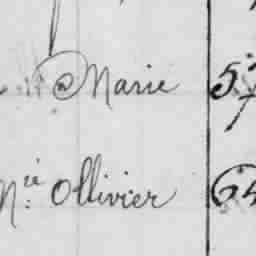 Marie 57
Mcé Ollivier 64